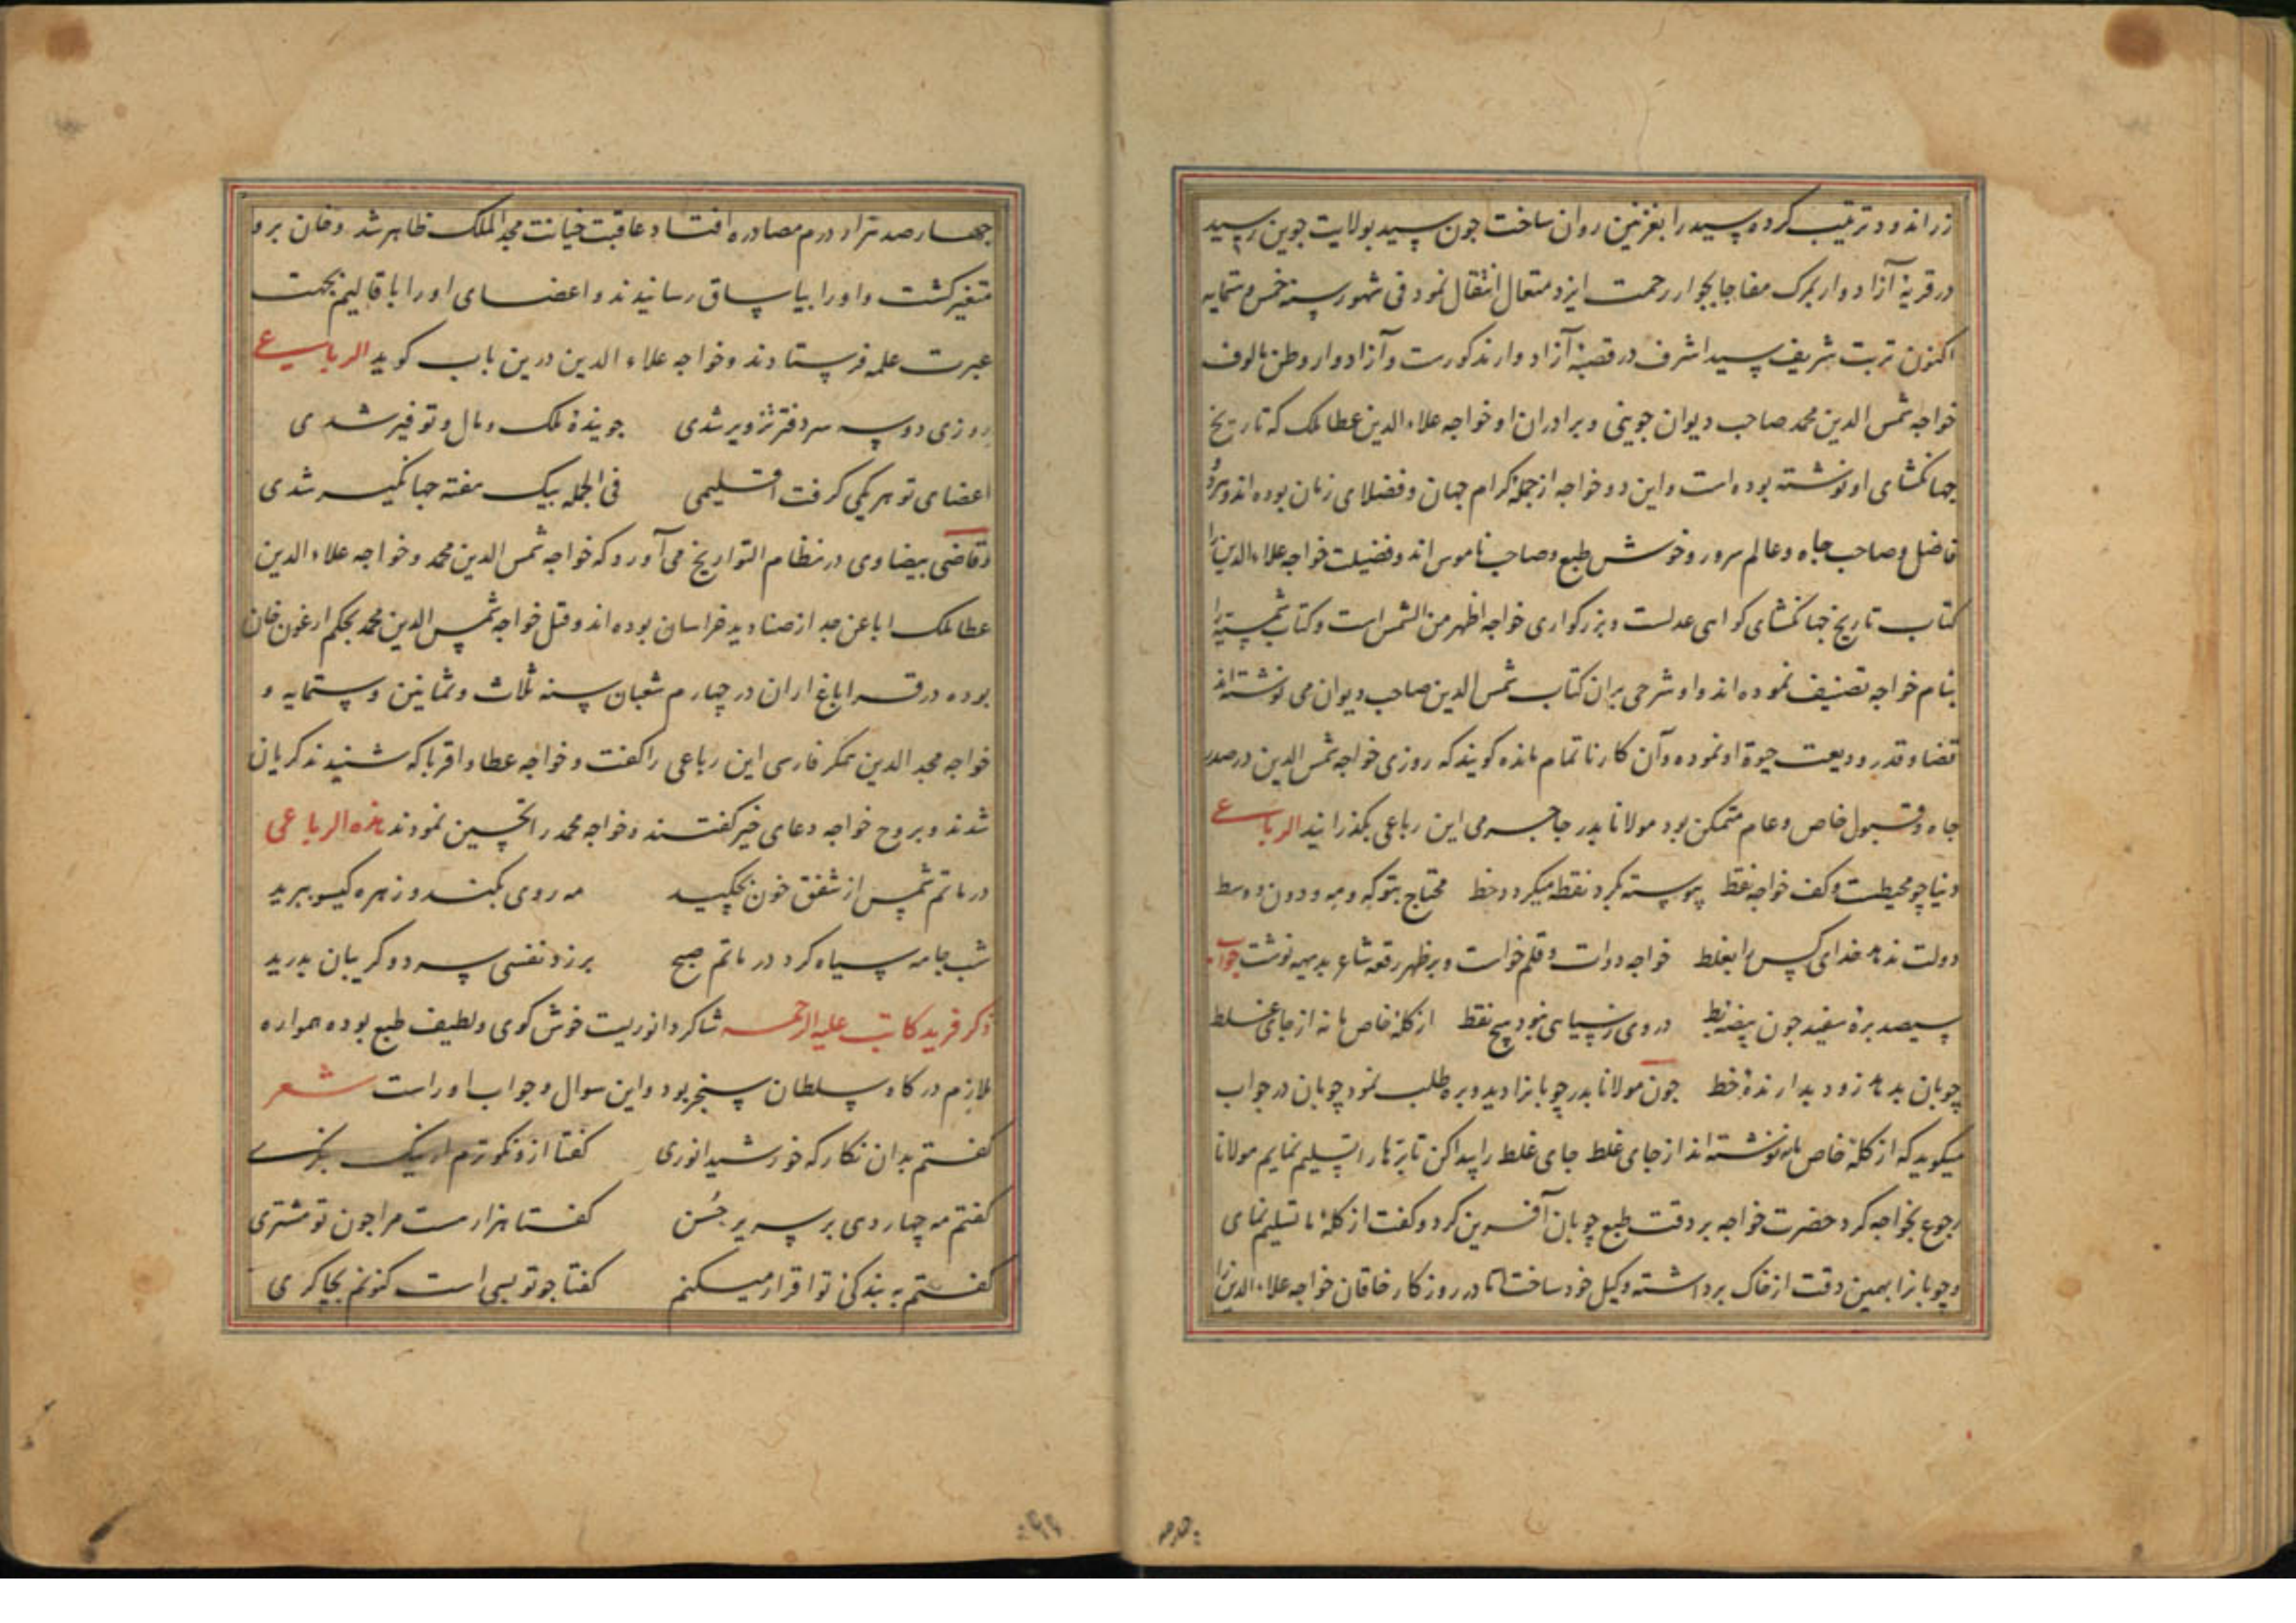 زر اندود ترتیب کرده سید را بغزنین روان ساخت جون سید بولایت جوین رسید
در قریهٔ آزادوار بمرک مفاجا بجوار رحمت ایزد متعال انتقال نمود فی شهور سنه خمس و ستمایه
اکنون تربت شریف سید اشرف در قصبهٔ آزادوار مذکورست و آزادوار وطن مالوف
خواجه شمس الدین محمد صاحب دیوان جوینی و برادران او خواجه علاء الدین عطا ملک که تاریخ
جهانکشای او نوشته بوده است و این دو خواجه از جملهٔ کرام جهان و فضلای زمان بوده اند و هردو
فاضل و صاحب جاه و عالم سرور و خوش طبع و صاحب ناموس اند و فضیلت خواجه علاء الدین را
کتاب تاریخ جهانکشای کواهی عدلست و بزرکواری خواجه اظهر من الشمس است و کتاب شمسیه را
بنام خواجه تصنیف نموده اند و او شرحی بران کتاب شمس الدین صاحب دیوان می نوشته اند
قضا و قدر ودیعت حیوة او نموده و آن کار ناتمام مانده کویند که روزی خواجه شمس الدین در صدر
جاه و قبول خاص و عام متمکن بود مولانا بدر جاجرمی این رباعی بکذرانید الرباعی
دنیا چو محیطست و کف خواجه نقط پیوسته بکرد نقطه میکردد خط محتاج بتو که و مه و دون و وسط
دولت ندهد خدای کس را بغلط خواجه دوات و قلم خواست و بر ظهر رقعه شاعر بدیهه نوشت جواب
سیصد برهٔ سفید جون بیضه بط در وی ز سیاهی نبود هیچ نقط از کلهٔ خاص ما نه از جای غلط
چوبان بدهد زود بدارندهٔ خط جون مولانا بدر چوبانرا دید و بره طلب نمود چوبان در جواب
میکوید که از کلهٔ خاص ما نوشته اند از جای غلط جای غلط را پیدا کن تا برها را تسلیم نمایم مولانا
رجوع بخواجه کرد حضرت خواجه بر دقت طبع چوبان آفرین کرد و کفت از کلهٔ ما تسلیم نمای
و چوبانرا بهمین دقت از خاک برداشته وکیل خود ساخت تا در روزکار خاقان خواجه علاء الدین را
جهارصد هزار درم مصادره افتاد عاقبت خیانت مجد الملک ظاهر شد و خان برو
متغیر کشت و او را بیاساق رسانیدند و اعضای او را باقالیم بجهت
عبرت علمه فرستادند و خواجه علاء الدین درین باب کوید الرباعی
روزی دو سه سر دفتر تزویر شدی جویندهٔ ملک و مال و توفیر شدی
اعضای تو هر یکی کرفت اقلیمی فی الجمله بیک هفته جهانکیر شدی
و قاضی بیضاوی در نظام التواریخ می آورد که خواجه شمس الدین محمد و خواجه علاء الدین
عطا ملک ابا عن جد از صنادید خراسان بوده اند و قتل خواجه شمس الدین محمد بحکم ارغون خان
بوده در قراباغ اران در چهارم شعبان سنه ثلاث و ثمانین و ستمایه و
خواجه مجد الدین همکر فارسی این رباعی را کفت و خواجه عطا و اقربا که شنیدند کریان
شدند و بروح خواجه دعای خیر کفتند و خواجه محمد را تحسین نمودند هذه الرباعی
در ماتم شمس از شفق خون بچکید مه روی بکند و زهره کیسو ببرید
شب جامه سیاه کرد در ماتم صبح برزد نفسی سرد و کریبان بدرید
ذکر فرید کاتب علیه الرحمه شاکرد انوریست خوش کوی و لطیف طبع بوده همواره
ملازم درکاه سلطان سنجر بود و این سوال و جواب او راست شعر
کفتم بدان نکار که خورشید انوری کفتا ازو نکوترم ار نیک بنکری
کفتم مه چهاردهی بر سریر حسن کفتا هزارست مرا جون تو مشتری
کفتم به بندکی تو اقرار میکنم کفتا جو تو بسی است کنونم بچاکری